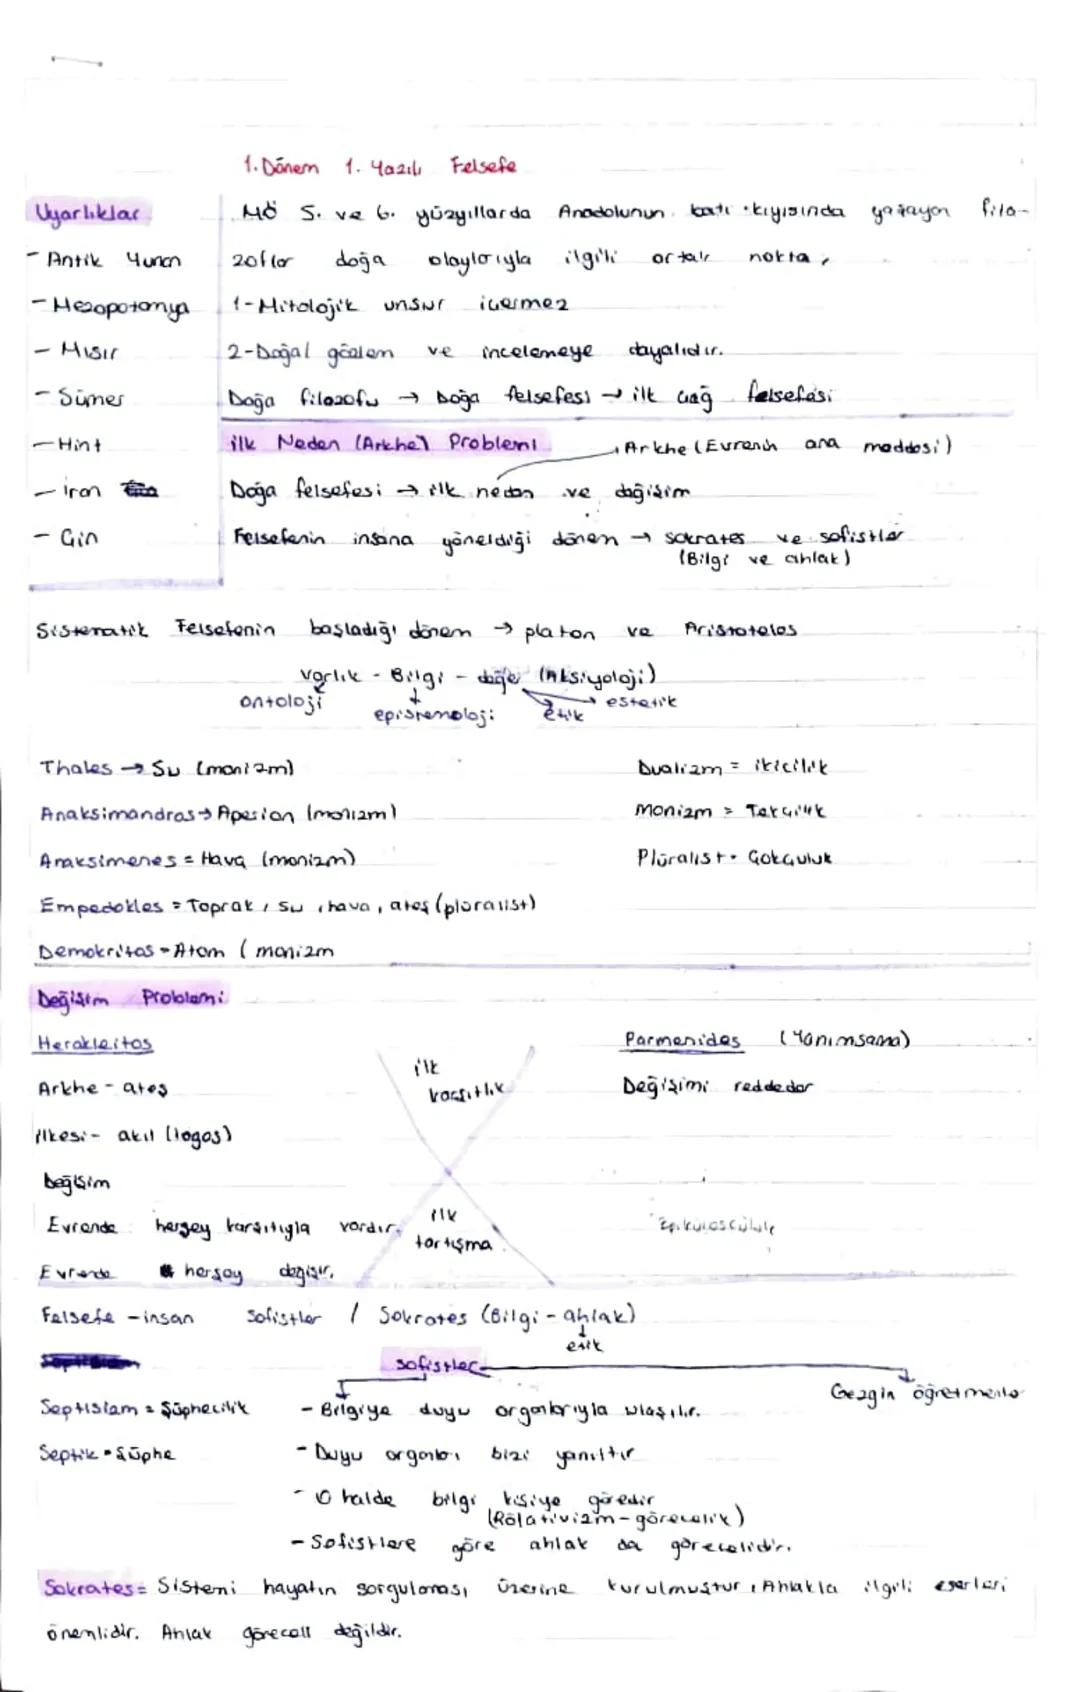 1. Dönem 1. Yazılı Felsefe
Uyarlıklar
- Antik Yunan
- Mezopotamya
- Mısır
- Sümer
- Hint
- iran
- Çin
MÖ 5. ve 6. yüzyıllarda Anadolunun batı kıyısında yaşayan filo-
zoflar doğa olaylarıyla ilgili ortak nokta;
1-Mitolojik unsur içermez
2-Doğal gözlem ve incelemeye dayalıdır.
Doğa filozofu → Doğa felsefesi → ilk çağ felsefesi
ilk Neden (Arkhe) Problemi
Arkhe (Evrenin ana maddesi)
Doğa felsefesi → ilk neden ve değişim
Felsefenin insana yöneldiği dönem → sokrates ve sofistler
(Bilgi ve ahlak)
Sistematik Felsefenin başladığı dönem → platon ve Aristoteles
Varlık - Bilgi - değer (Aksiyoloji)
ontoloji epistemoloji etik estetik
Thales → Su (monizm)
Anaksimandros → Aperion (monizm)
Anaksimenes = Hava (monizm)
Empedokles = Toprak, su, hava, ateş (plüralist)
Demokritos - Atom (monizm
Dualizm = ikicilik
Monizm = Tekçilik
Plüralist - Çokçuluk
Değişim Problemi
Herakleitos
Arkhe - ateş
ilkesi - akıl (logos)
Değişim
Evrende herşey karşıtıyla vardır.
Evrende herşey değişir.
ilk
karşıtlık
ilk
tartışma
Parmenides (Yanımsama)
Değişimi reddeder
Felsefe - insan sofistler / Sokrates (Bilgi - ahlak)
etik
sofistler
Gezgin öğretmenler
Septisizm = Şüphecilik
Septik = Şüphe
- Bilgiye duyu organlarıyla ulaşılır.
- Duyu organları bizi yanıltır
- O halde bilgi kişiye göredir
(Rölativizm-görecelik)
- Sofistlere göre ahlak da görecelidir.
Sokrates = Sistemi hayatın sorgulaması üzerine kurulmuştur, Ahlakla ilgili eserleri
önemlidir. Ahlak göreceli değildir.